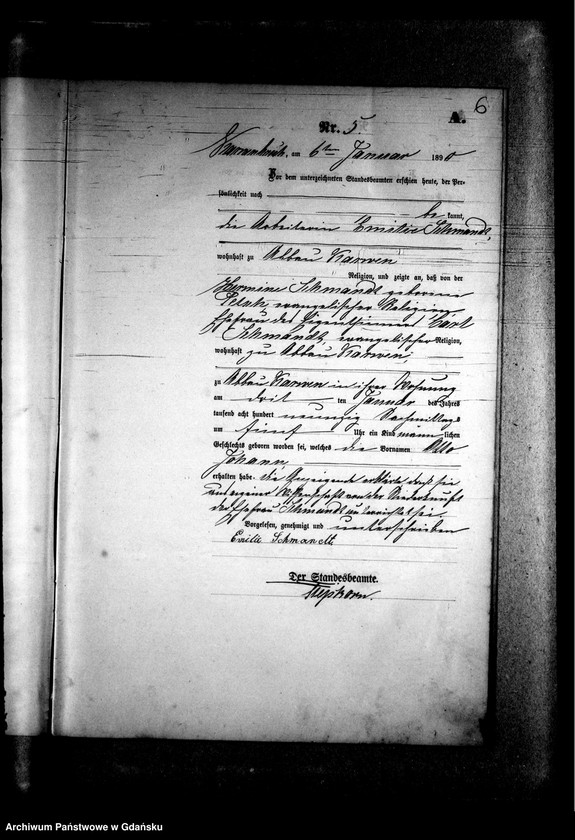 6
A.
Nr. 5.
am 6ten Januar 1890
Vor dem unterzeichneten Standesbeamten erschien heute, der Per-
sönlichkeit nach
be kannt,
die Arbeiterin Emilie Schmandt,
wohnhaft zu Abbau Karwen
Religion, und zeigte an, daß von der
Hermine Schmandt geborene
evangelischer Religion,
Ehefrau des Eigenthümers Carl
Schmandt, evangelischer Religion,
wohnhaft zu Abbau Karwen,
zu Abbau Karwen in ihrer Wohnung
am drit ten Januar des Jahres
tausend acht hundert neunzig Nachmittags
um fünf Uhr ein Kind männ lichen
Geschlechts geboren worden sei, welches die Vornamen Otto
Johann
erhalten habe. die Anzeigende erklärte, daß sie
aus eigener Wissenschaft von der Niederkunft
der Ehefrau Schmandt unterrichtet sei.
Vorgelesen, genehmigt und unterschrieben
Emilie Schmandt.
Der Standesbeamte.
Archiwum Państwowe w Gdańsku